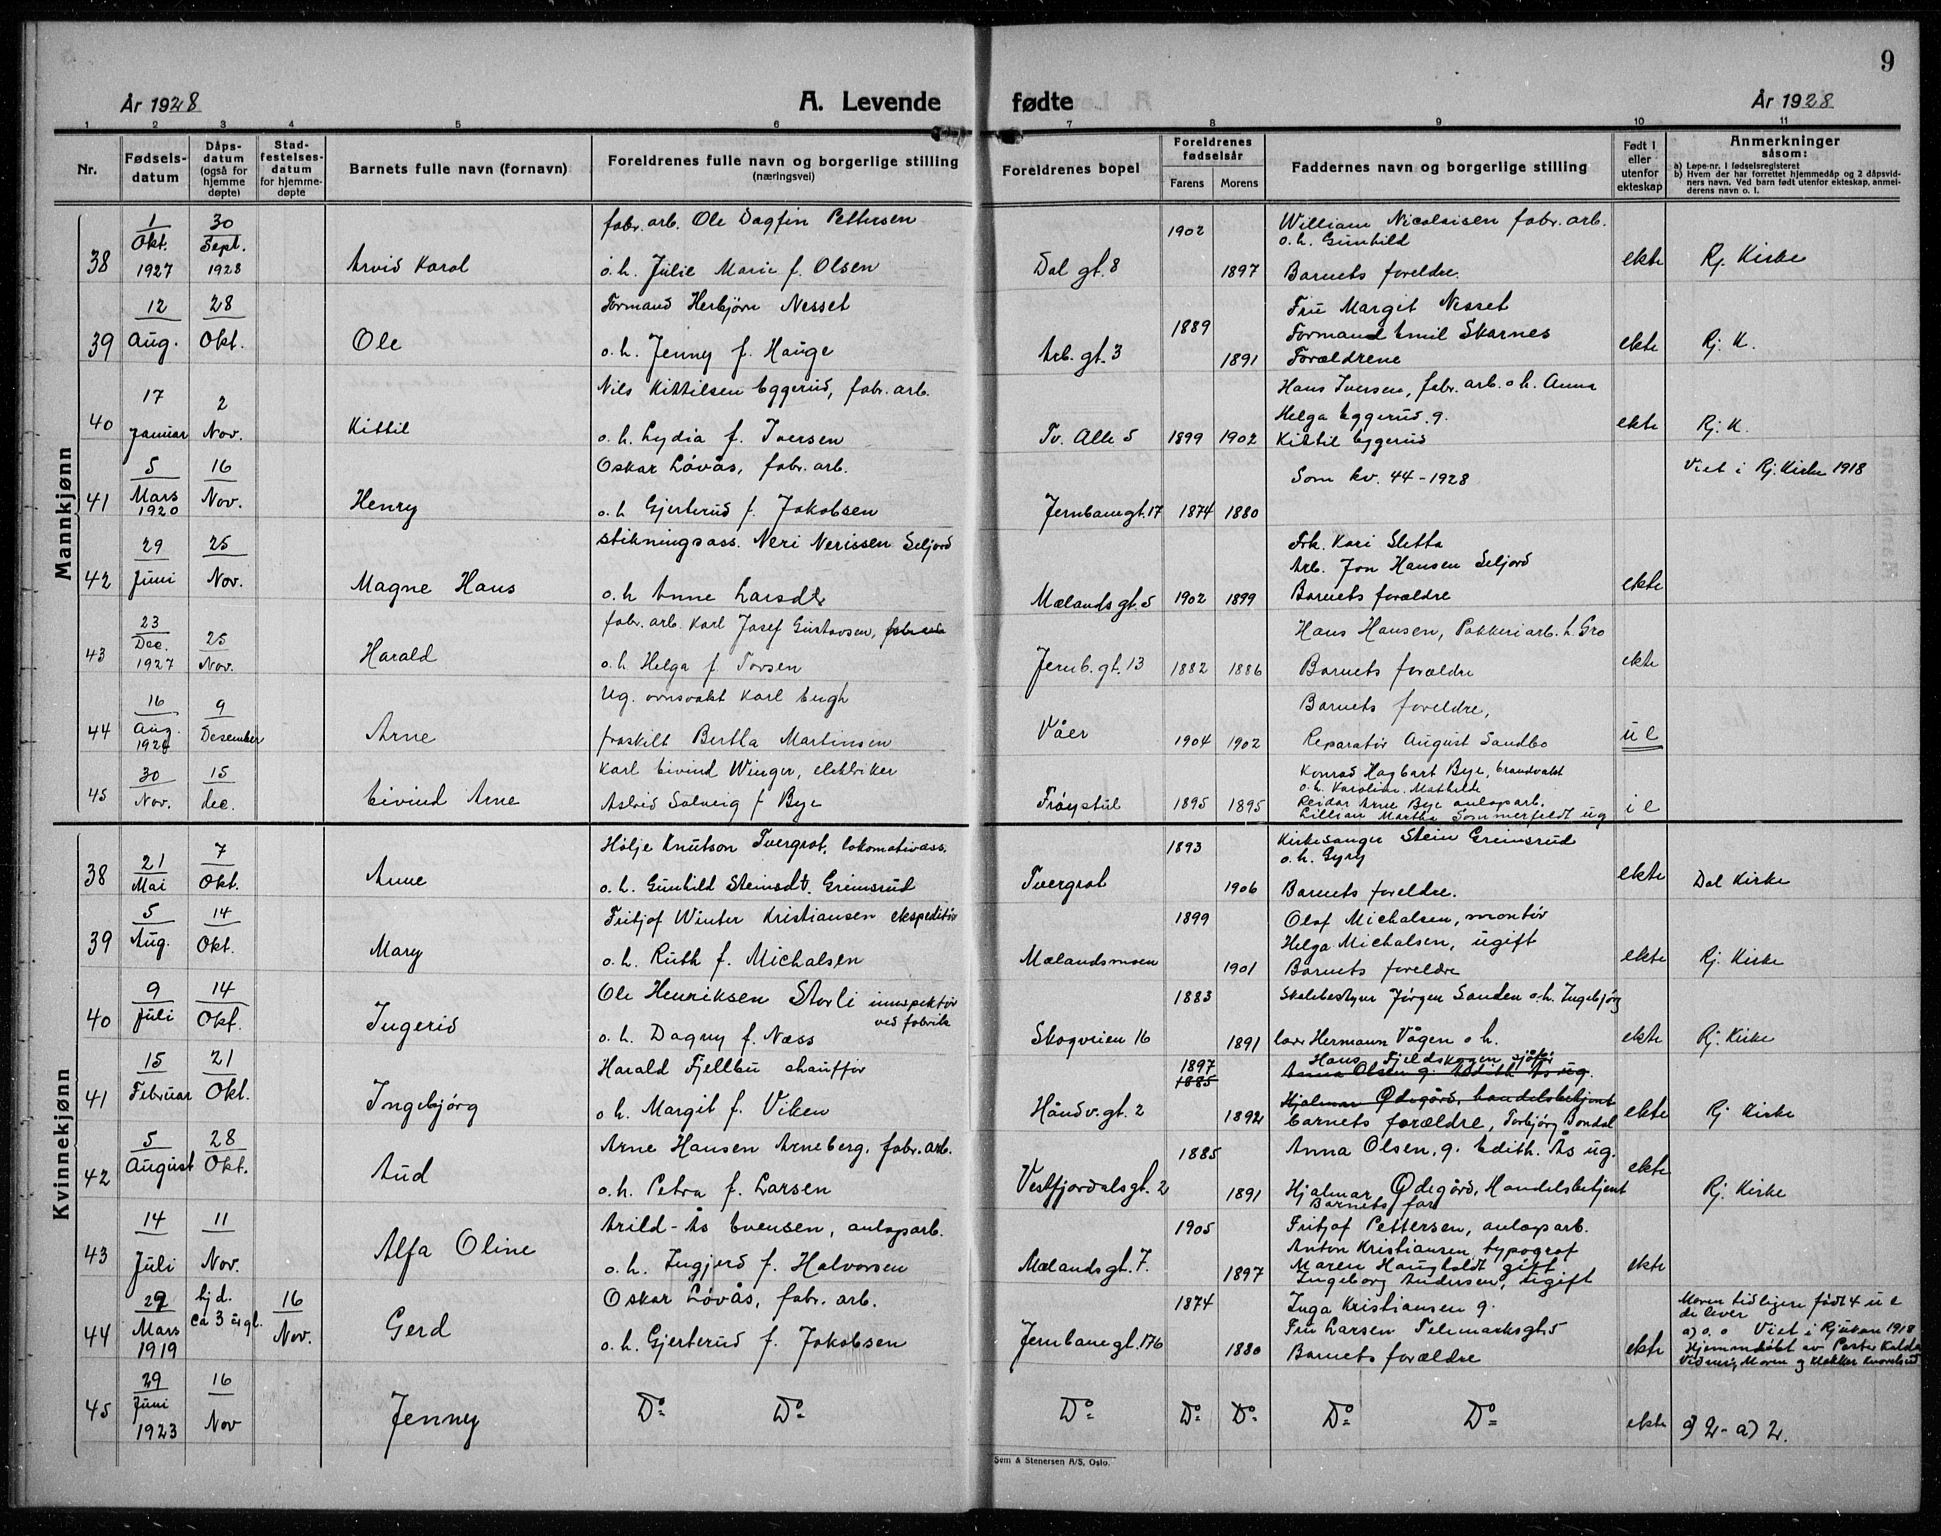 9
År 1928 A. Levende fødte År 1928
1 2 3 4 5 6 7 8 9 10 11
Nr. Fødselsdatum Dåpsdatum (også for hjemmedøpte) Stadfestelsesdatum for hjemmedøpte Barnets fulle navn (fornavn) Foreldrenes fulle navn og borgerlige stilling (næringsvei) Foreldrenes bopel Foreldrenes fødselsår Farens Morens Faddernes navn og borgerlige stilling Født i eller utenfor ekteskap Anmerkninger såsom:
a) Løpe-nr. i fødselsregisteret
b) Hvem der har forrettet hjemmedåp og 2 dåpsvidners navn. Ved barn født utenfor ekteskap, anmelderens navn o. l.
Mannkjønn
38 1 Okt. 1927 30 Sept. 1928 Arvid Karal
fabr. arb. Ole Dagfin Pettersen
o. h. Julie Marie f. Olsen
Dal gt. 8 1902 1897
William Nicolaisen fabr. arb.
o. h. Gunhild
Barnets foreldre.
ekte Rj. Kirke
39 12 Aug. 28 Okt. Ole
Formand Herbjørn Nesset
o. h. Jenny f. Hauge
Arb. gt. 3 1889 1891
Fru Margit Nesset
Formand Emil Skarnes
Forældrene
ekte Rj. K.
40 17 Januar 2 Nov. Kittil
Nils Kittilsen Eggerud, fabr. arb.
o. h. Lydia f. Iversen
Tv. Alle 5 1899 1902
Hans Iversen, fabr. arb. o h. Anna
Helga Eggerud g.
Kittil Eggerud
ekte Rj. K.
41 5 Mars 1920 16 Nov. Henry
Oskar Løvås, fabr. arb.
o. h. Gjertrud f. Jakobsen
Jernbanegt. 17 1874 1880
Som kv. 44-1928
Viet i Rj. Kirke 1918
42 29 Juni 25 Nov. Magne Hans
stikningsass. Neri Nerissen Seljord
o. h Anne Larsdtr
Mælandsgt. 5 1902 1899
Frk. Kari Sletta
Arb. Jon Hansen Seljord
Barnets forældre
ekte
43 23 Dec. 1927 25 Nov. Harald
fabr. arb. Karl Josef Gustavsen,
o. h Helga f. Torsen
Jernb. gt. 13 1882 1886
Hans Hansen, Pakkeriarb. h. Gro
Barnets forældre
ekte
44 16 Aug. 9 Desember Arne
Ug. ovnsvakt Karl Engh
fraskilt Bertha Martinsen
Våer 1904 1902
Barnets foreldre,
Reparatør August Sandbo
u e
45 30 Nov. 15 dec. Eivind Arne
Karl Eivind Winger, elektriker
Astrid Solveig f Bye
Frøystul 1895 1895
Konrad Hagbart Bye, brandvakt
o. h. Karoline Mathilde
Reidar Arne Bye anlagsarb.
Lillian Martha Sommerfeldt ug
i e
Kvinnekjønn
38 21 Mai 7 Okt. Anne
Hølje Knutson Tvergrot, lokomotivass.
o. h. Gunhild Steinsdt. Grimsrud
Tvergrot 1893 1906
Kirkesanger Stein Grimsrud
o. h. Gyry
Barnets foreldre.
ekte Dal Kirke
39 5 Aug. 14 Okt. Mary
Fritjof Winter Kristiansen ekspeditør
o. h. Ruth f. Michalsen
Mælandsmoen 1899 1901
Olaf Michalsen, montør
Helga Michalsen, ugift
Barnets foreldre
ekte Rj. Kirke
40 9 Juli 14 Okt. Ingerid
Ole Henriksen Storli innspektør ved fabrik
o. h. Dagny f. Næss
Skogveien 16 1883 1891
Skolebestyrer Jørgen Sanden o. h. Ingebjørg
Hermann Vågen o h.
ekte Rj. Kirke
41 15 Februar 21 Okt. Ingebjørg
Harald Fjellbu chauffør
o. h. Margit f. Viken
Håndv. gt. 2 1897 1885 1892
Hans Fjeldskogen sjåfør
Anna Olsen g. Edith Ås ug.
Hjalmar Ødegård, handelsbetjent
barnets forældre, Torbjørg Bondal
ekte Rj Kirke
42 5 August 28 Okt. Aud
Arne Hansen Arneberg, fabr. arb.
o. h. Petra f. Larsen
Vestfjordalsgt. 2 1885 1891
Anna Olsen, g. Edith. Ås ug.
Hjalmar Ødegård, Handelsbetjent
Barnets far
ekte Rj. Kirke
43 14 Juli 11 Nov. Alfa Oline
Arild-Ås Evensen, anlagsarb.
o. h. Ingjerd f. Halvorsen
Mælandsgt. 7. 1905 1897
Fritjof Pettersen, anlagsarb.
Anton Kristiansen, typograf
Maren Haugholdt gift
Ingeborg Andersen, ugift
ekte
44 29 Mars 1919 hj d. ca 3 u gl. 16 Nov. Gerd
Oskar Løvås, fabr. arb.
o. h. Gjertrud f. Jakobsen
Jernbanegt. 17b 1874 1880
Inga Kristiansen g.
Fru Larsen Telemarksgt 5
Barnets forældre
ekte
Moren tidligere født 4 u e
de lever
a) o. o Viet i Rjukan 1918
Hjemmedøbt av Pastor
Vidner, Moren og klokker
45 29 Juni 1923 16 Nov Jenny
Do Do Do Do Do Do Do
ekte g 2 - a) 2.
Sem & Stenersen A/S, Oslo.